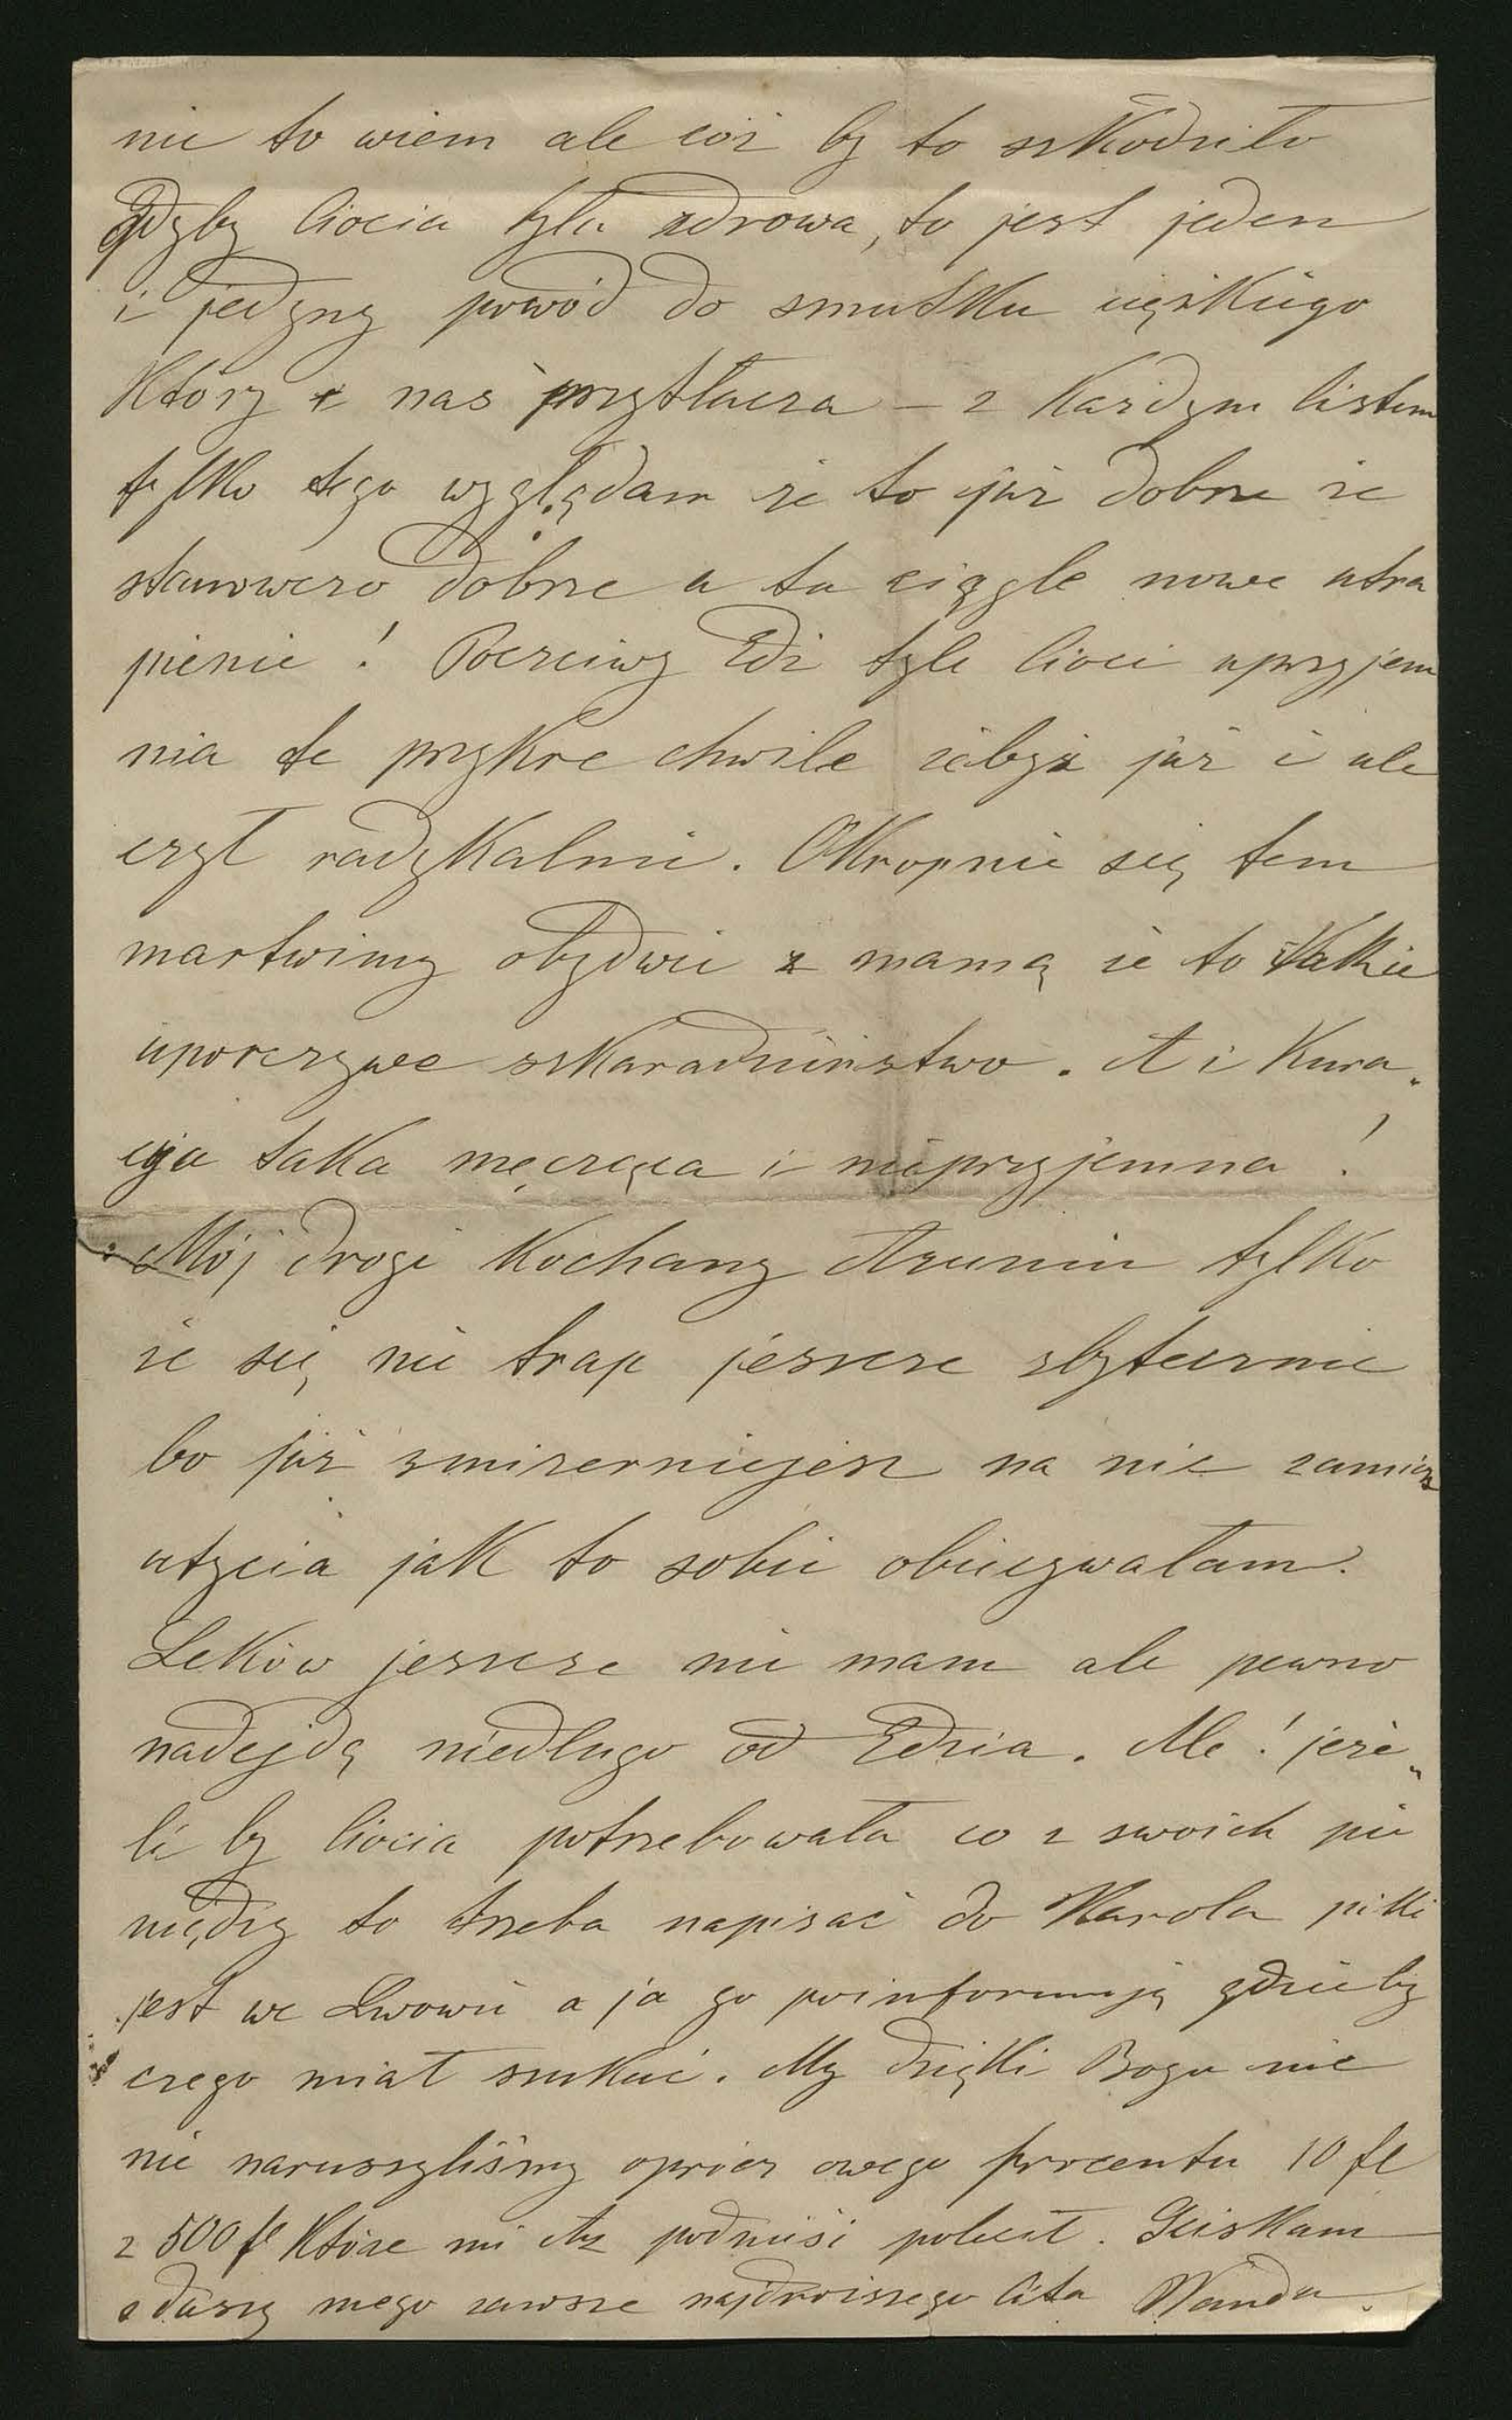 nie to wiem ale cóż by to szkodziło
gdyby Ciocia była zdrowa, to jest jeden
i jedyny powód do smutku ciężkiego
który i nas przytłacza – z każdym listem
tylko tego wyglądam że to już dobrze że
stanowczo dobrze a tu ciągle nowe utra
pienie! Poczciwy Edź tyle Cioci uprzyjem
nia te przykre chwile żebyż już i ule
czył radykalnie. Okropnie się tem
martwimy obydwie z mamą że to takie
uporczywe szkaradzieństwo. A i kura„
cyja taka męcząca i nieprzyjemna!
Mój drogi kochany tylko
że się nie trap jeszcze zbytecznie
bo już zmizerniejesz na nic zamiast
utycia jak to sobie obiecywałam.
Leków jeszcze nie mam ale pewno
nadejdą niedługo od Edzia. Ale! jeże„
li by Ciocia potrzebowała co z swoich pie
niędzy to trzeba napisać do Karola póki
jest we Lwowie a ja go poinformuję gdzieby
czego miał szukać. My dzięki Bogu nic
nie naruszyliśmy oprócz owego procentu 10 fl
z 500 fl które mi podnieść polecił. Ściskam
z duszy mego zawsze najdroższego Wanda.